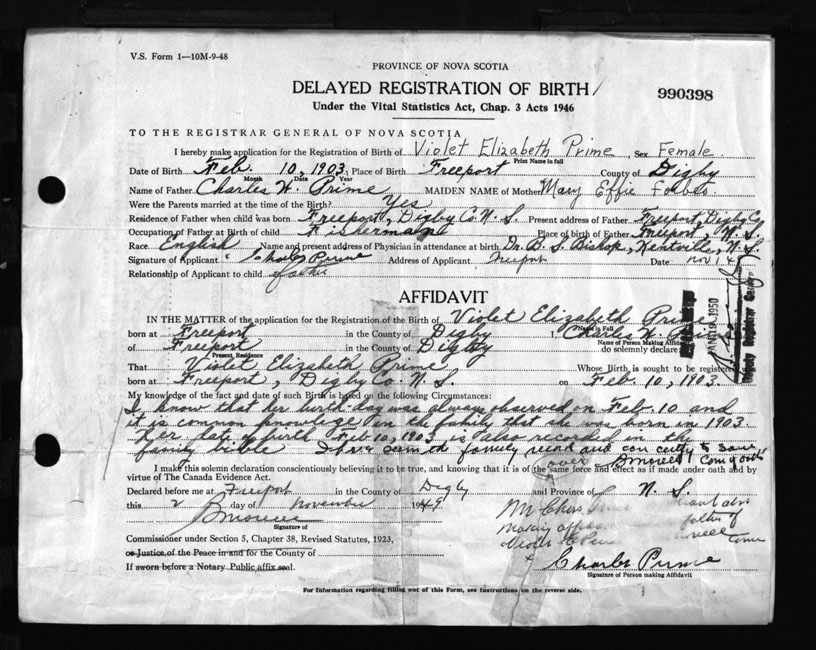 V.S. Form 1—10M-9-48
PROVINCE OF NOVA SCOTIA
DELAYED REGISTRATION OF BIRTH
990398
Under the Vital Statistics Act, Chap. 3 Acts 1946
TO THE REGISTRAR GENERAL OF NOVA SCOTIA
I hereby make application for the Registration of Birth of Violet Elizabeth Prime, Sex Female
Print Name in full
Date of Birth Feb. 10, 1903, Place of Birth Freeport County of Digby
Month Date Year
Name of Father Charles W. Prime MAIDEN NAME of Mother Mary Effie Forbes
Were the Parents married at the time of the Birth? Yes
Residence of Father when child was born Freeport, Digby Co. N. S. Present address of Father Freeport, Digby Co
Occupation of Father at Birth of child Fisherman Place of birth of Father Freeport, N. S.
Race English Name and present address of Physician in attendance at birth Dr. B. S. Bishop, Kentville, N. S.
Signature of Applicant Charles Prime Address of Applicant Freeport Date Nov 1
Relationship of Applicant to child father
AFFIDAVIT
IN THE MATTER of the application for the Registration of the Birth of Violet Elizabeth Prime
Name in Full
born at Freeport in the County of Digby I, Charles W.
Name of Person Making Affidavit
of Freeport in the County of Digby do solemnly declare
Present Residence
1950
Deputy Registrar General
That Violet Elizabeth Prime Whose Birth is sought to be registered
born at Freeport, Digby Co. N. S. on Feb. 10, 1903.
My knowledge of the fact and date of such Birth is based on the following Circumstances:
I know that her birthday was always observed on Feb. 10 and
it is common knowledge in the family that she was born in 1903.
Her date of birth Feb 10, 1903 is also recorded in the
family bible I have seen the family record and
I make this solemn declaration conscientiously believing it to be true, and knowing that it is of the same force and effect as if made under oath and by
virtue of The Canada Evidence Act.
Declared before me at Freeport in the County of Digby and Province of N. S.
this 2 day of November 1949
Signature of
Commissioner under Section 5, Chapter 38, Revised Statutes, 1923,
or Justice of the Peace in and for the County of
If sworn before a Notary Public affix seal.
Mr Chas.
making
father of
Charles Prime
Signature of Person making Affidavit
For Information regarding filling out of this Form, see Instructions on the reverse side.